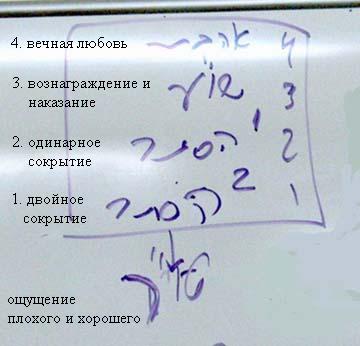 4. вечная любовь 4
3. вознаграждение и
наказание שו"ע 3
2. одинарное
сокрытие הסתר 1 2
1. двойное
сокрытие הסתר 2 1
ощущение
плохого и хорошего